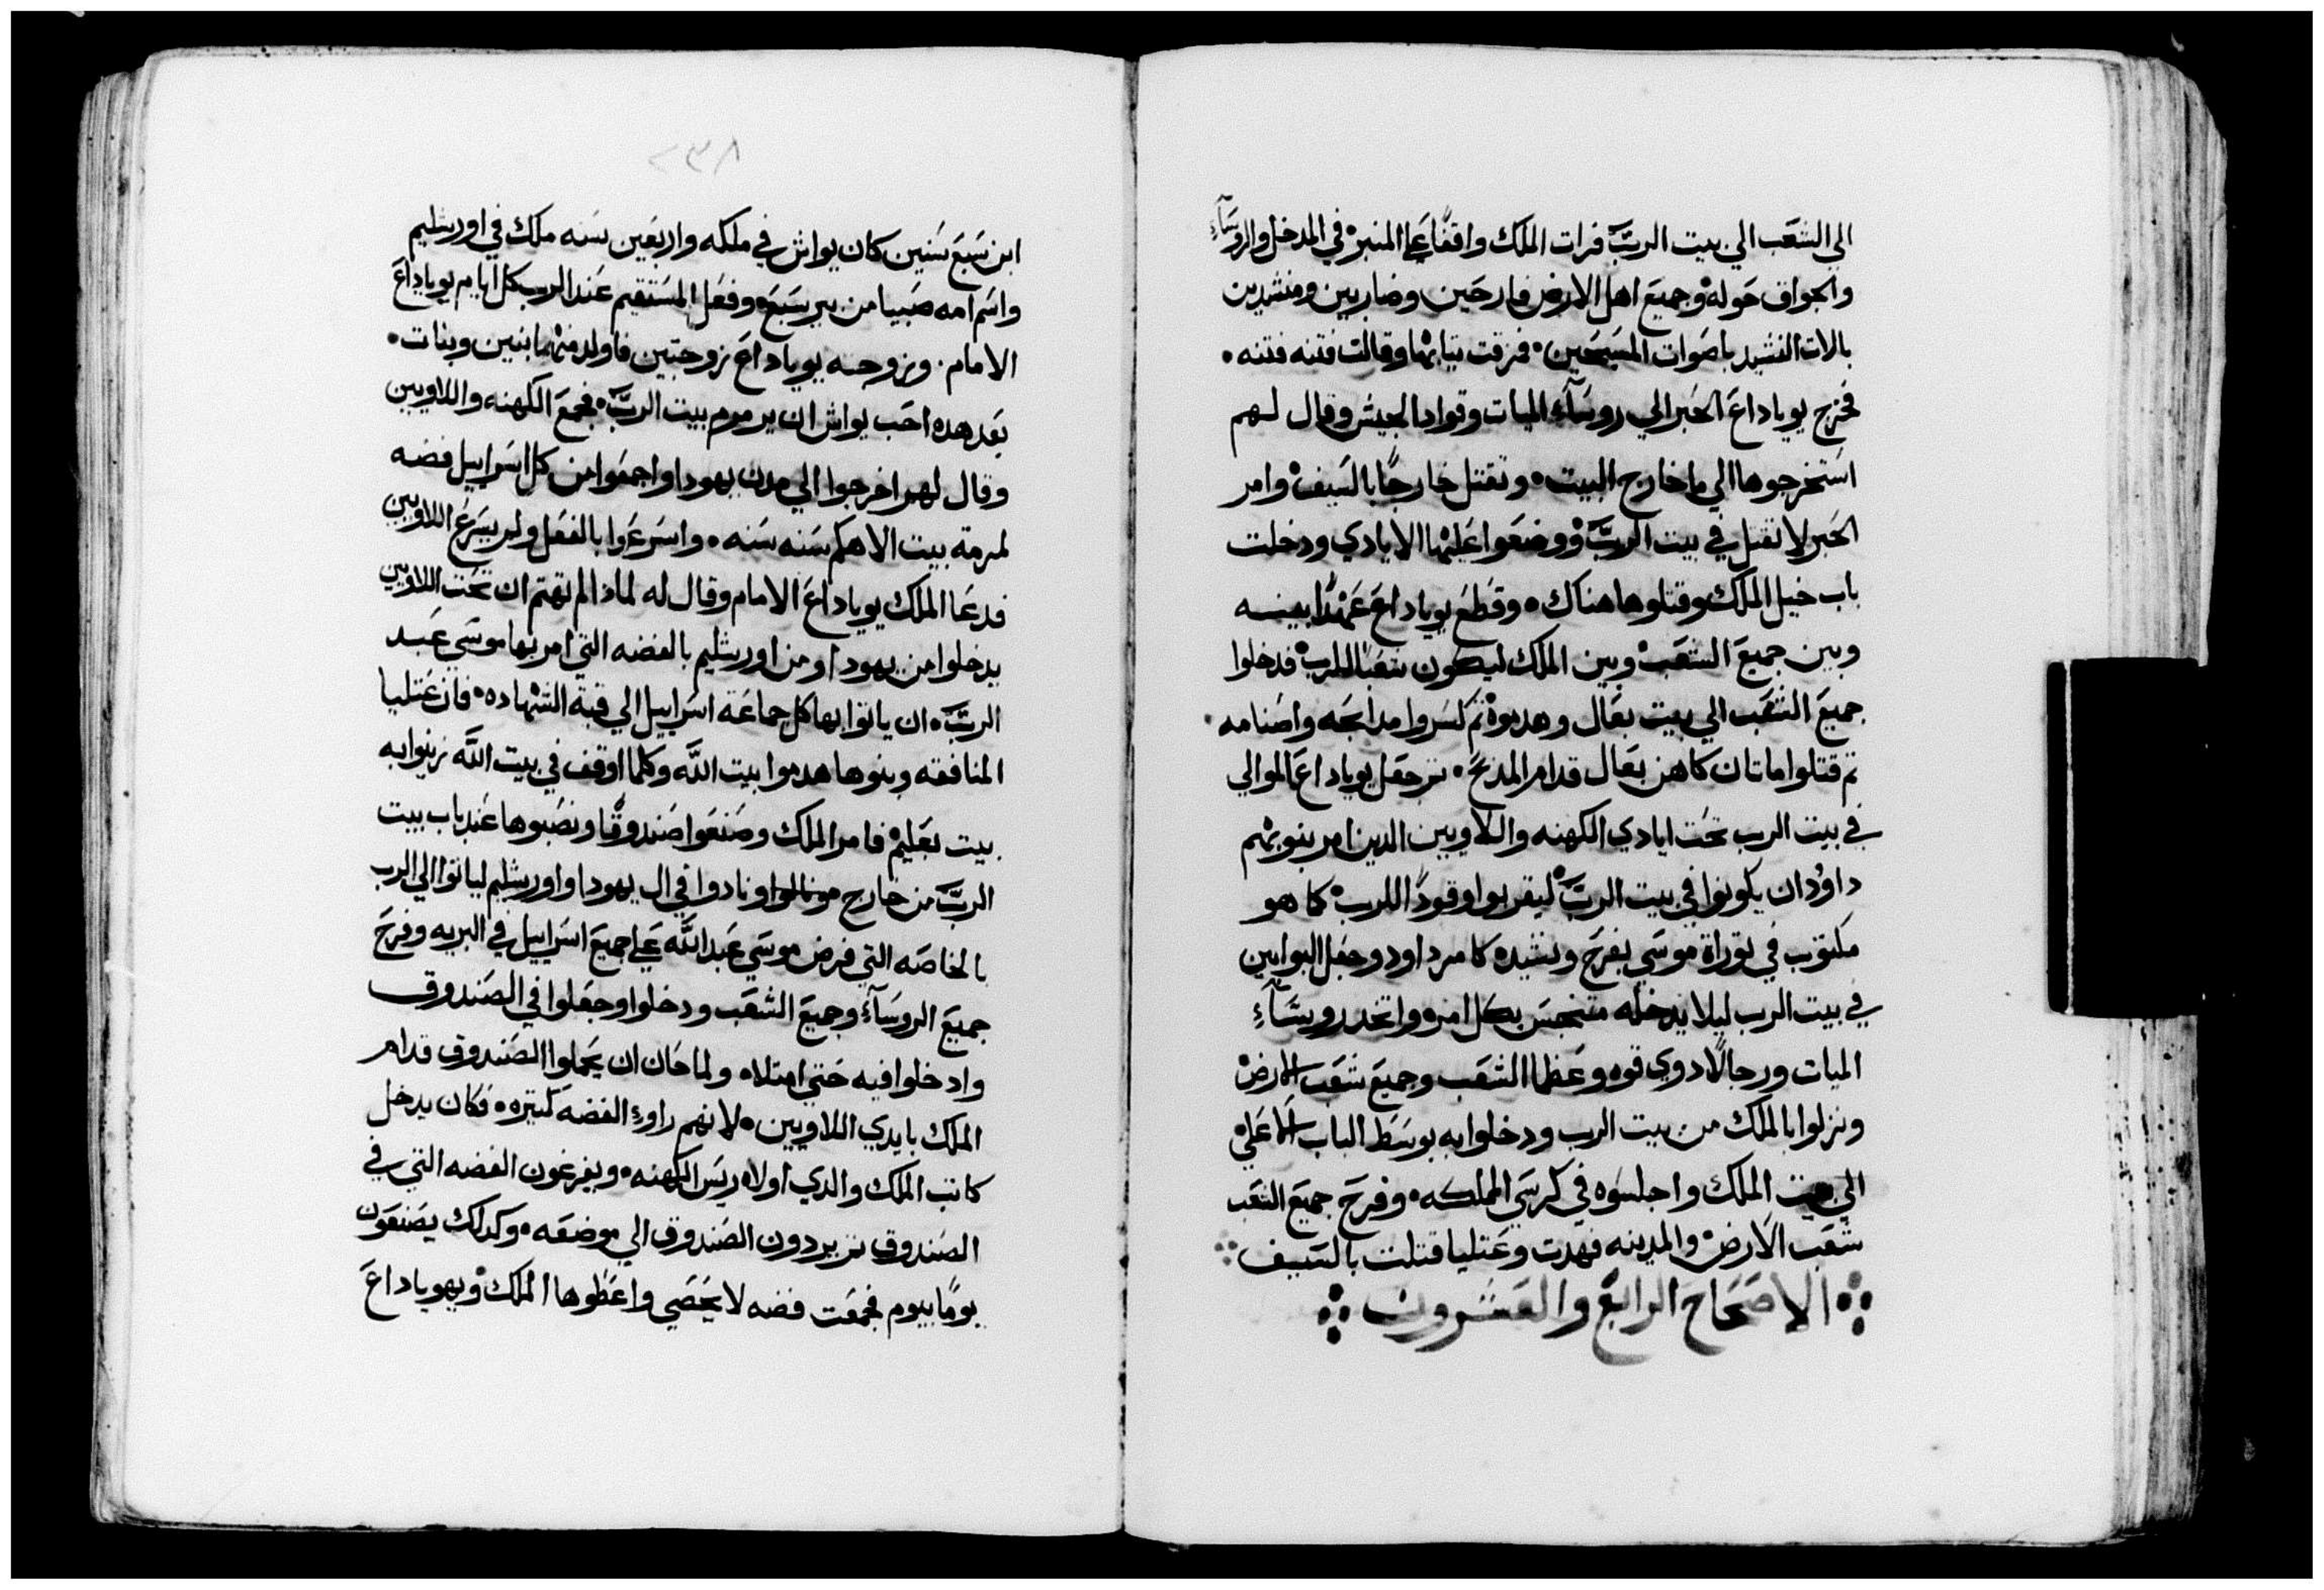 الي الشعب الي بيت الرب فرات الملك واقفًا علي المنبر في المدخل والروسآء
والجواق حوله وجميع اهل الارض فارحين وضاربين ومنشدين
بالات النشيد باصوات المسبحين فمزقت تيابها وقالت فتنه فتنه
فخرج يوياداع الحبر الي روسآء الميات وقواد الجيش وقال لهم
استخرجوها الي ما خارج البيت وتقتل خارجًا بالسيف وامر
الحبر لا تقتل في بيت الرب ووضعوا عليها الايادي ودخلت
باب خيل الملك وقتلوها هناك وقطع يوياداع عهدًا بينه
وبين جميع الشعب وبين الملك ليكون شعبا للرب فدخلوا
جميع الشعب الي بيت بعال وهدموه تم كسروا مدابحه واصنامه
تم قتلوا ماتان كاهن بعال قدام المدبح تم جعل يوياداع الموالي
في بيت الرب تحت ايادي الكهنه واللاويين الدين امر بنوبتهم
داوُد ان يكونوا في بيت الرب ليقربوا وقودًا للرب كما هو
مكتوب في توراة موسي بفرح ونشيده كامر داود وجعل البوابين
في بيت الرب ليلا يدخله متنجس بكل امره واتخد روسآء
الميات ورجالًا دوي قوه وعظما الشعب وجميع شعب الارض
ونزلوا بالملك من بيت الرب ودخلوا به بوسط الباب الاعلي
الي بيت الملك واجلسوه في كرسي المملكه وفرح جميع الشعب
شعب الارض والمدينه فهدت وعتليا قتلت بالسيف
الاصحاح الرابع والعشرون
٢٣٨
ابن سبع سنين كان يواش في ملكه واربعين سنه ملك في اورشليم
واسم امه صبيا من بير سبع وفعل المستقيم عند الرب كل ايام يوياداع
الامام وزوجه يوياداع زوجتين فاولد منهما بنين وبنات
بعد هده احب يواش ان يرموم بيت الرب فجمع الكهنه واللاويين
وقال لهم اخرجوا الي مدن يهودا واجمعوا من كل اسراييل فضه
لمرمة بيت الاهكم سنه سنه واسرعوا بالفعل ولم يسرع اللاويين
فدعا الملك يوياداع الامام وقال له لمادا لم تهتم ان تحت اللاويين
يدخلوا من يهودا ومن اورشليم بالفضه التي امر بها موسي عبد
الرب ان ياتوا بها كل جماعة اسراييل الي قبة الشهاده فان عتليا
المنافقه وبنوها هدموا بيت الله وكلما اوقف في بيت الله زينوا به
بيت بعليم فامر الملك وصنعوا صندوقًا ونصبوها عند باب بيت
الرب من خارج ونادوا في ال يهودا واورشليم لياتوا الي الرب
بالخاصه التي فرض موسي عبد الله علي جميع اسراييل في البريه وفرح
جميع الروسآء وجميع الشعب ودخلوا وجعلوا في الصندوق
وادخلوا فيه حتي امتلاه ولما حان ان يحملوا الصندوق قدام
الملك بايدي اللاويين لانهم راوا الفضه كتيره فكان يدخل
كاتب الملك والدي اولاه ريس الكهنه ويفرغون الفضه التي في
الصندوق تم يردون الصندوق الي موضعه وكدلك يصنعون
يومًا بيوم فجمعت فضه لا تحصي واعطوها الملك ويهوياداع